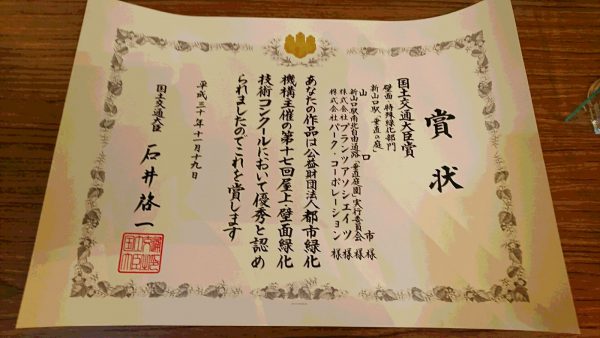 賞状
国土交通大臣賞
壁面・特殊緑化部門
新山口駅「垂直の庭」
山口市様
新山口駅南北自由通路「垂直庭園」実行委員会様
株式会社プランツアソシエイツ様
株式会社パーク・コーポレーション様
あなたの作品は公益財団法人都市緑化
機構主催の第十七回屋上・壁面緑化
技術コンクールにおいて優秀と認め
られましたのでこれを賞します
平成三十年十一月十九日
国土交通大臣 石井啓一